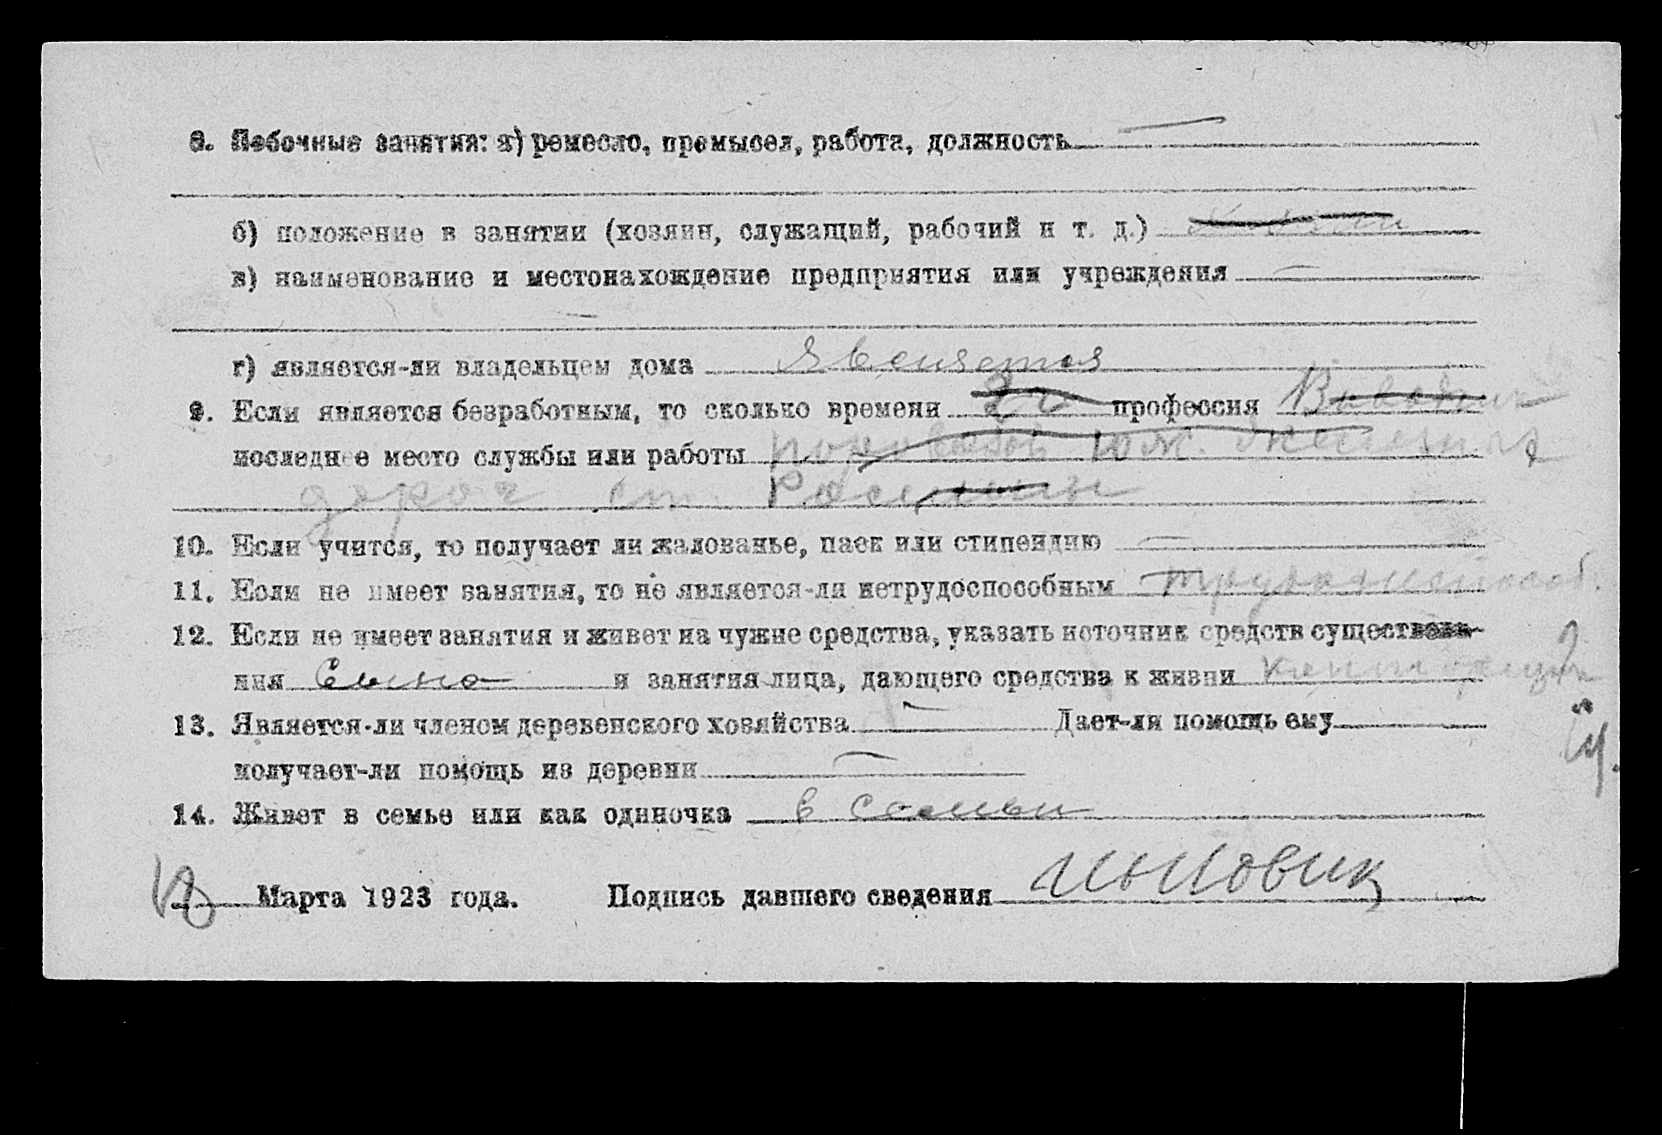 8. Побочные занятия: а) ремесло, промысел, работа, должность —
б) положение в занятии (хозяин, служащий, рабочий и т. д.)
в) наименование и местонахождение предприятия или учреждения —
г) является-ли владельцем дома является
9. Если является безработным, то сколько времени 2 г профессия
последнее место службы или работы Юж.
дорог ст.
10. Если учится, то получает ли жалованье, паек или стипендию —
11. Если не имеет занятия, то не является-ли нетрудоспособным
12. Если не имеет занятия и живет на чужие средства, указать источник средств существова-
ния Сына и занятия лица, дающего средства к жизни
13. Является-ли членом деревенского хозяйства — Дает-ли помощь ему
получает-ли помощь из деревни —
14. Живет в семье или как одиночка в семьи
Марта 1923 года. Подпись давшего сведения